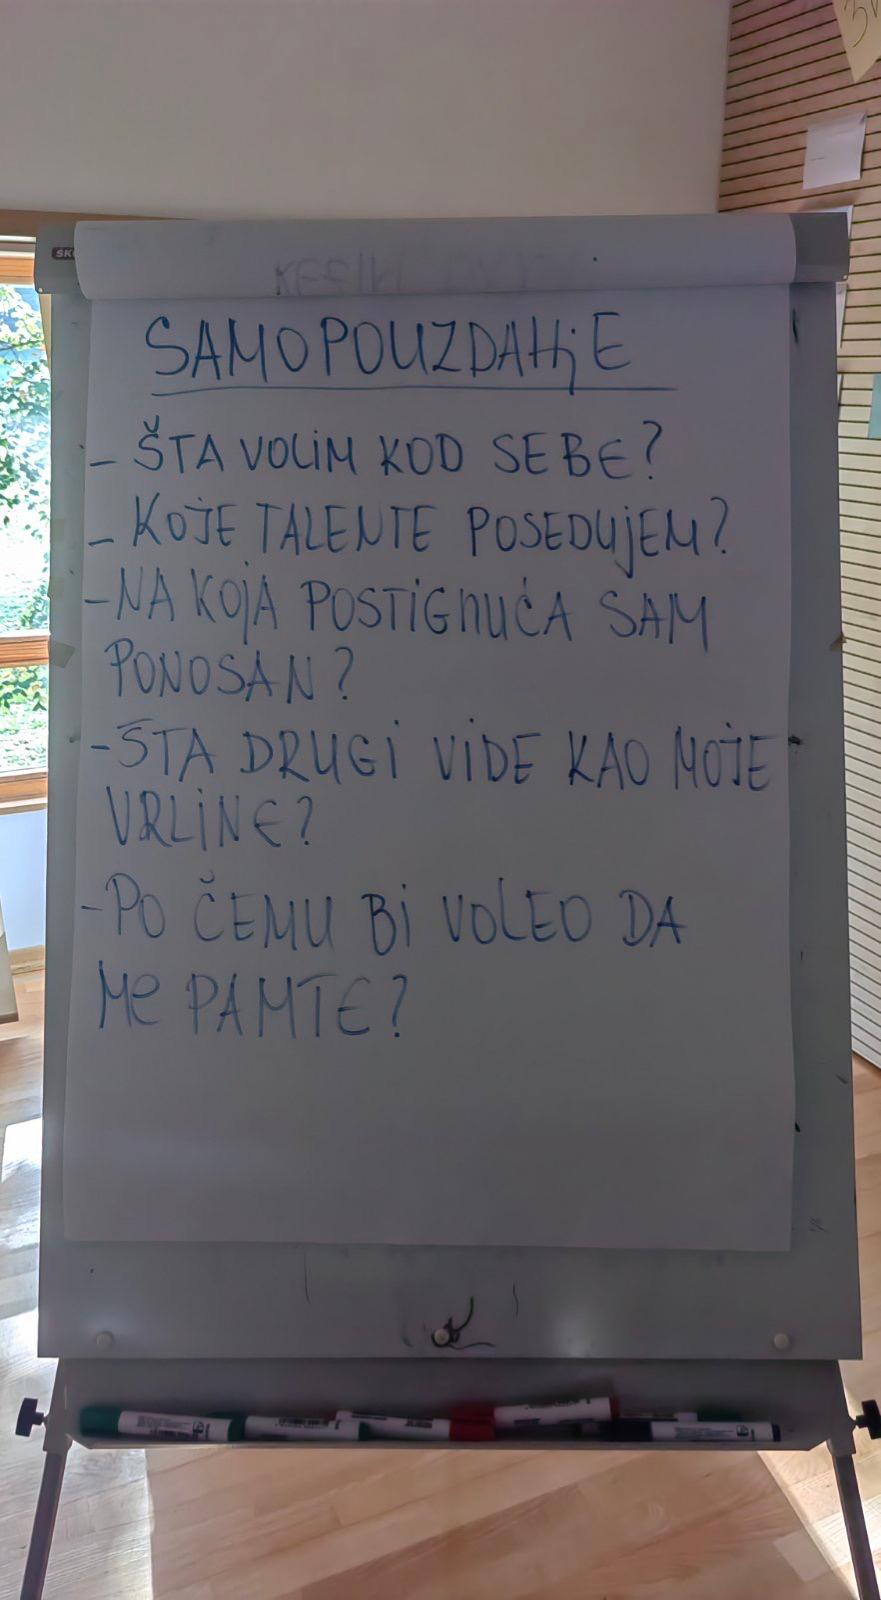 SAMOPOUZDANjE
- ŠTA VOLiM KOD SEBE?
- KOJE TALENTE POSEDUjEM?
- NA KOjA POSTiGNUĆA SAM
PONOSAN?
- ŠTA DRUGi ViDE KAO MOJE
VRLiNE?
- PO ČEMU Bi VOLEO DA
Me PAMTE?